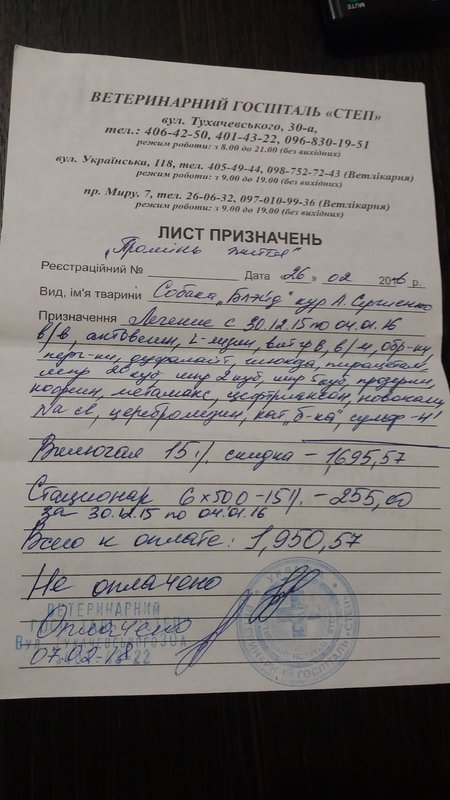 ВЕТЕРИНАРНИЙ ГОСПІТАЛЬ «СТЕП»
вул. Тухачевського, 30-а,
тел.: 406-42-50, 401-43-22, 096-830-19-51
режим роботи: з 8.00 до 21.00 (без вихідних)
вул. Українська, 118, тел. 405-49-44, 098-752-72-43 (Ветлікарня)
режим роботи: з 9.00 до 19.00 (без вихідних)
пр. Миру, 7, тел. 26-06-32, 097-010-99-36 (Ветлікарня)
режим роботи: з 9.00 до 19.00 (без вихідних)
ЛИСТ ПРИЗНАЧЕНЬ
„Промінь життя"
Реєстраційний № Дата «26» 02 2016 р.
Вид, ім'я тварини Собака „ кур А. Сергиенко
Призначення Лечение с 30.12.15 по 04.01.16
в/в, актовегин, L-лизин, вит гр В, в/м, обр-ки,
дуфалайт, глюкоза, пирацетам,
шпр 20 куб шпр 2 куб, шпр 5 куб, прозерин,
кофеин, метамакс, новокаин,
церебролизин, кат „б-ка",
Включая 15% скидка – 1695,57
Стационар 6 х 500 -15% - 255,00
за 30.12.15 по 04.01.16
Всего к оплате: 1,950,57
Не оплачено
ВЕТЕРИНАРНИЙ
Оплачено
07.02.18